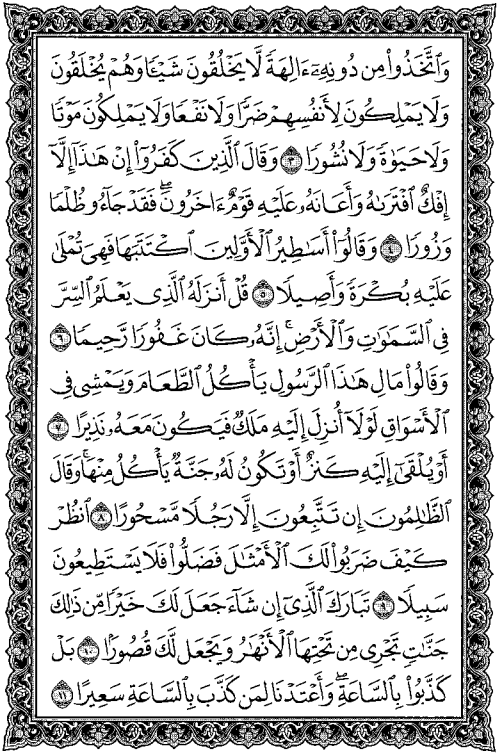 وَٱتَّخَذُوا۟ مِن دُونِهِۦٓ ءَالِهَةً لَّا يَخْلُقُونَ شَيْـًٔا وَهُمْ يُخْلَقُونَ
وَلَا يَمْلِكُونَ لِأَنفُسِهِمْ ضَرًّا وَلَا نَفْعًا وَلَا يَمْلِكُونَ مَوْتًا
وَلَا حَيَوٰةً وَلَا نُشُورًا ٣ وَقَالَ ٱلَّذِينَ كَفَرُوٓا۟ إِنْ هَـٰذَآ إِلَّآ
إِفْكٌ ٱفْتَرَىٰهُ وَأَعَانَهُۥ عَلَيْهِ قَوْمٌ ءَاخَرُونَ ۖ فَقَدْ جَآءُو ظُلْمًا
وَزُورًا ٤ وَقَالُوٓا۟ أَسَـٰطِيرُ ٱلْأَوَّلِينَ ٱكْتَتَبَهَا فَهِىَ تُمْلَىٰ
عَلَيْهِ بُكْرَةً وَأَصِيلًا ٥ قُلْ أَنزَلَهُ ٱلَّذِى يَعْلَمُ ٱلسِّرَّ
فِى ٱلسَّمَـٰوَٰتِ وَٱلْأَرْضِ ۚ إِنَّهُۥ كَانَ غَفُورًا رَّحِيمًا ٦
وَقَالُوا۟ مَالِ هَـٰذَا ٱلرَّسُولِ يَأْكُلُ ٱلطَّعَامَ وَيَمْشِى فِى
ٱلْأَسْوَاقِ ۙ لَوْلَآ أُنزِلَ إِلَيْهِ مَلَكٌ فَيَكُونَ مَعَهُۥ نَذِيرًا ٧
أَوْ يُلْقَىٰٓ إِلَيْهِ كَنزٌ أَوْ تَكُونُ لَهُۥ جَنَّةٌ يَأْكُلُ مِنْهَا ۚ وَقَالَ
ٱلظَّـٰلِمُونَ إِن تَتَّبِعُونَ إِلَّا رَجُلًا مَّسْحُورًا ٨ ٱنظُرْ
كَيْفَ ضَرَبُوا۟ لَكَ ٱلْأَمْثَـٰلَ فَضَلُّوا۟ فَلَا يَسْتَطِيعُونَ
سَبِيلًا ٩ تَبَارَكَ ٱلَّذِىٓ إِن شَآءَ جَعَلَ لَكَ خَيْرًا مِّن ذَٰلِكَ
جَنَّـٰتٍ تَجْرِى مِن تَحْتِهَا ٱلْأَنْهَـٰرُ وَيَجْعَل لَّكَ قُصُورًۢا ١٠ بَلْ
كَذَّبُوا۟ بِٱلسَّاعَةِ ۖ وَأَعْتَدْنَا لِمَن كَذَّبَ بِٱلسَّاعَةِ سَعِيرًا ١١